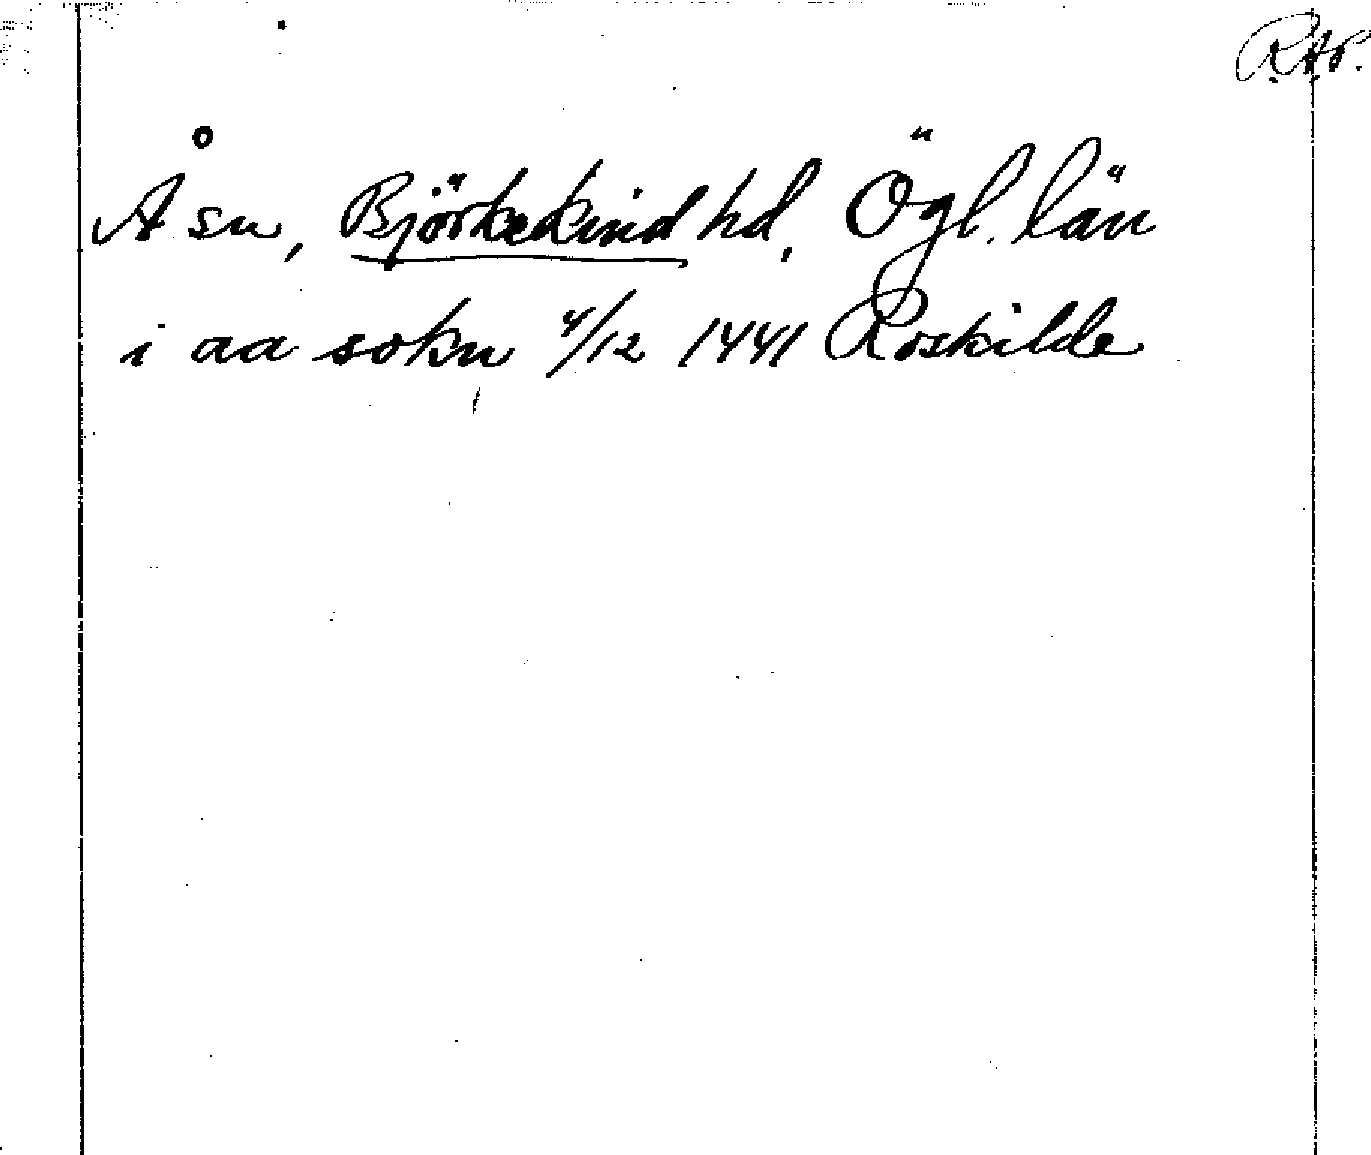 RAp.
Å sn, Björkekind hd, Ögl. län
i aa sokn 4/12 1441 Roskilde